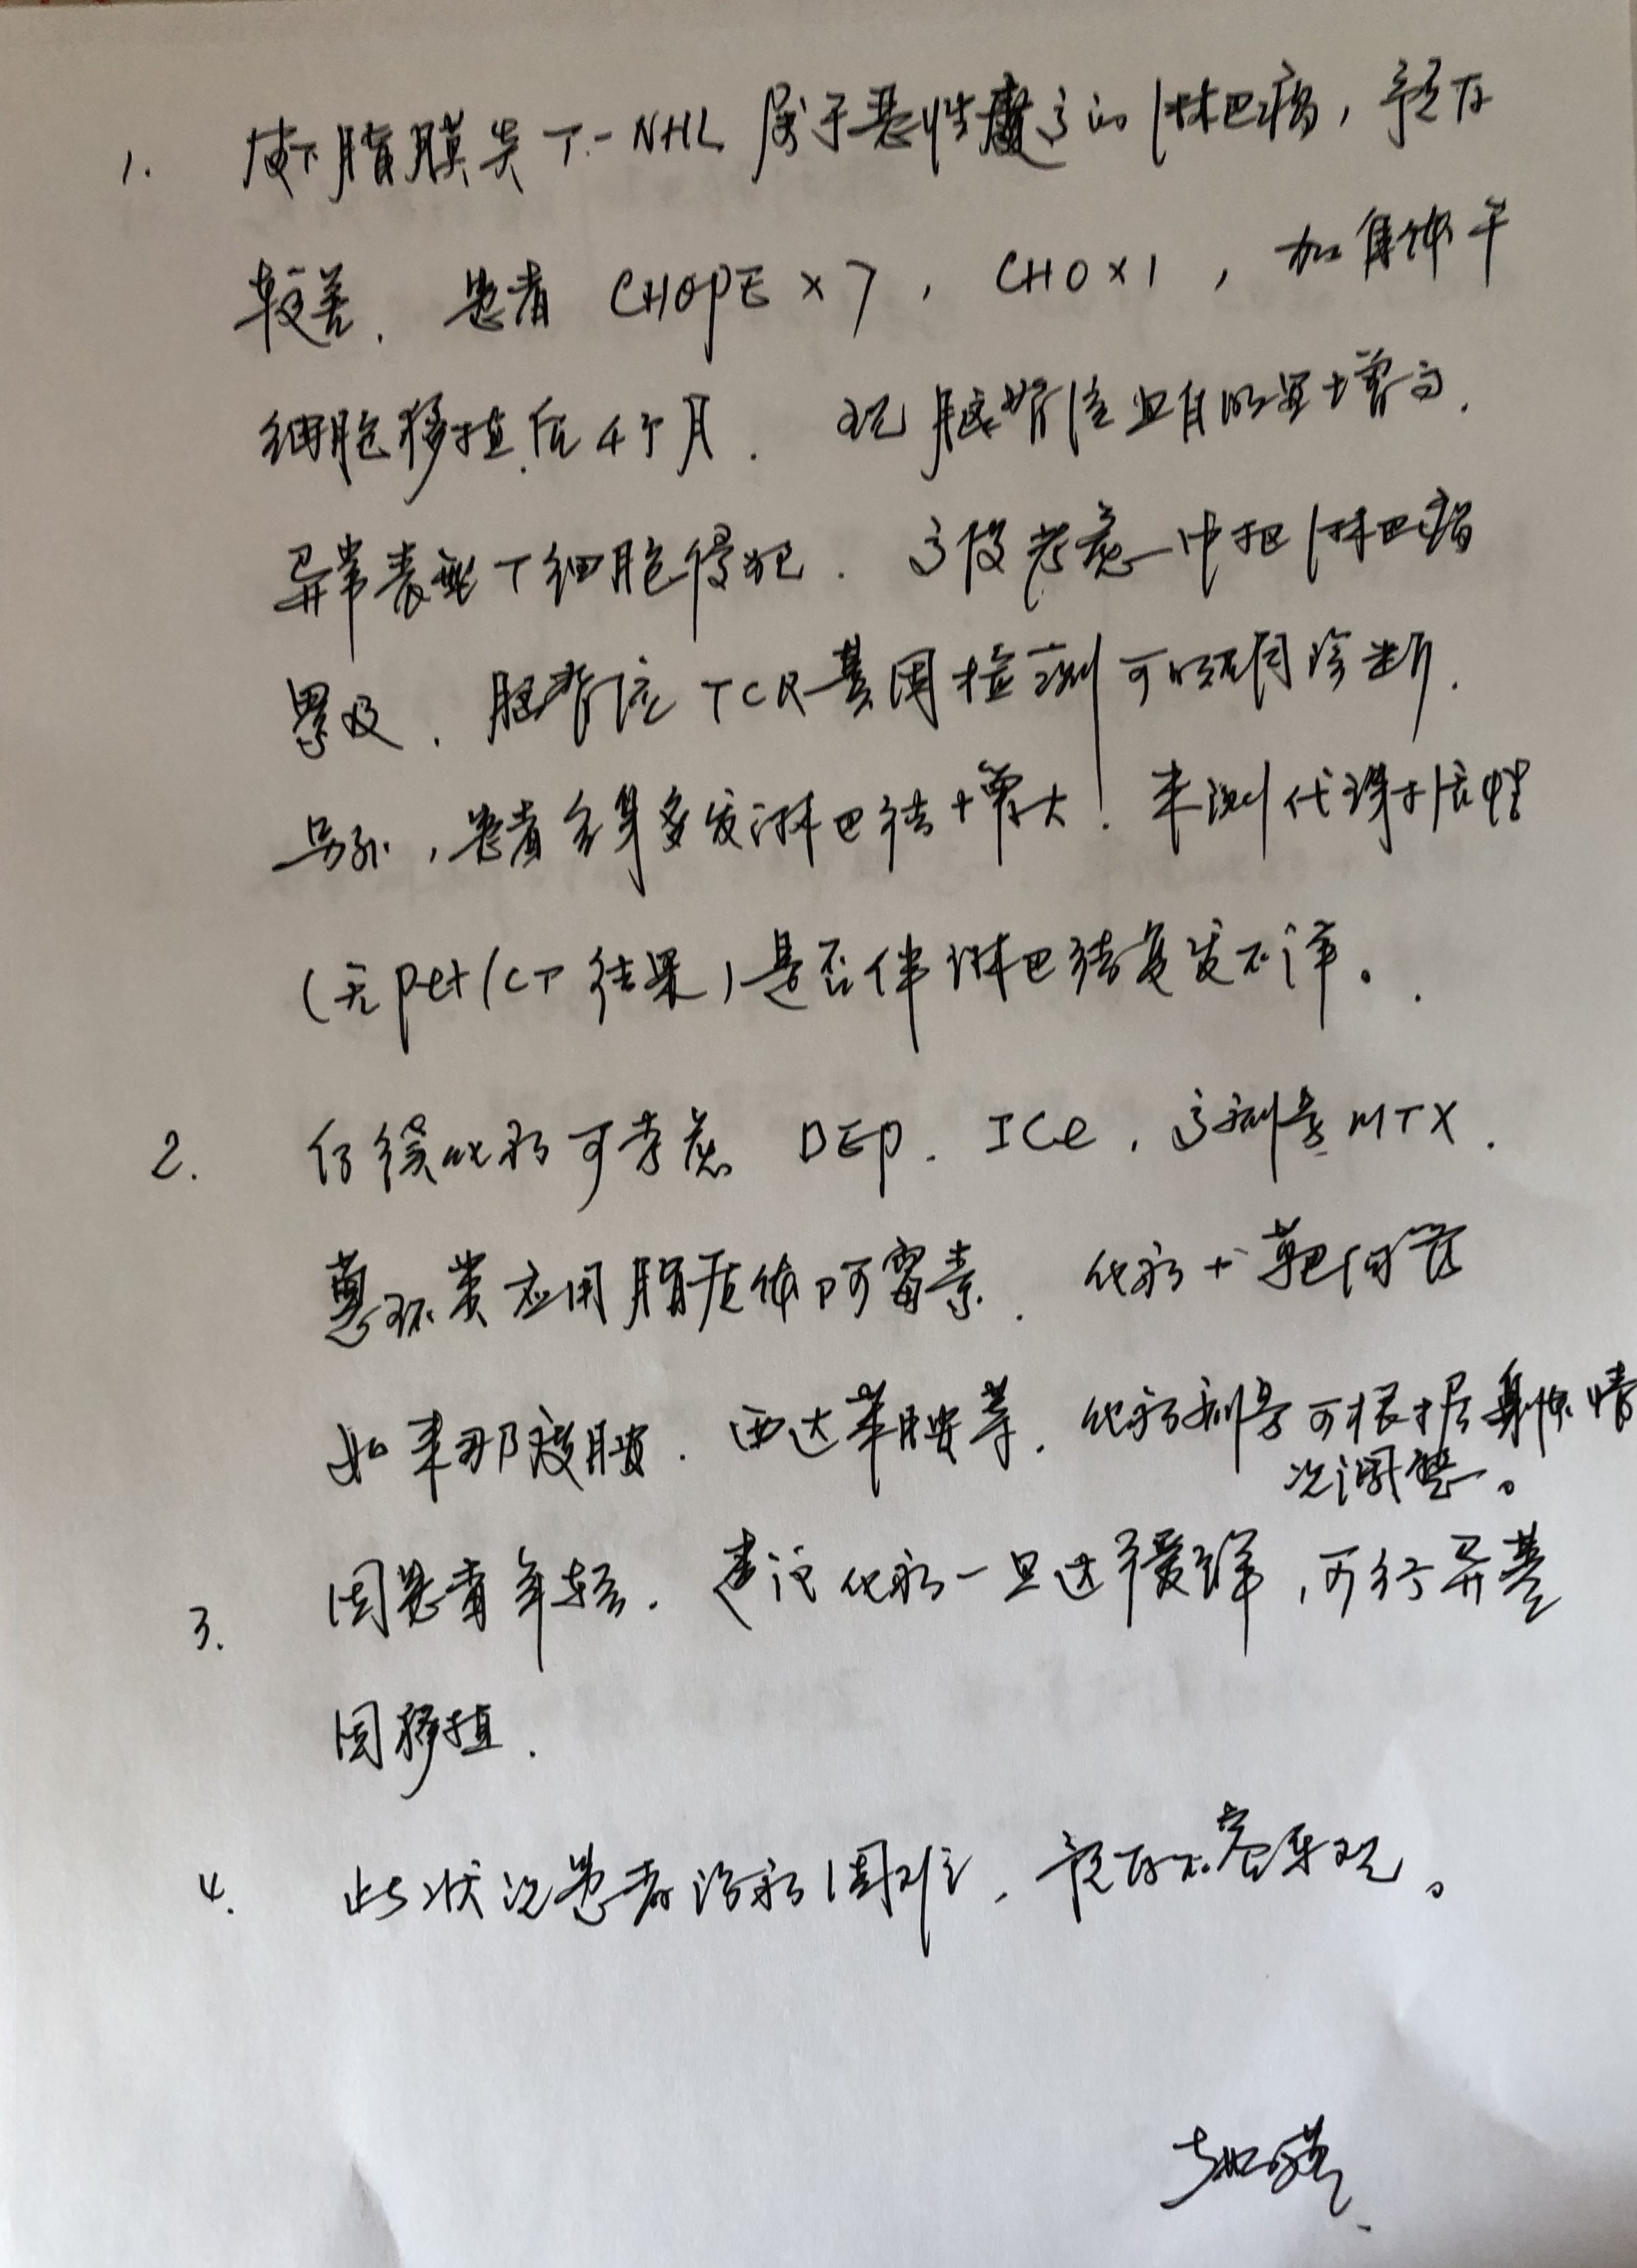 1. 皮下脂膜炎 T-NHL 属于恶性度高的淋巴瘤，预后
较差. 患者 CHOPE×7, CHO×1, 加自体干
细胞移植后4个月. 现脑脊液蛋白明显增高.
异常表型T细胞侵犯. 高度考虑中枢淋巴瘤
累及. 脑脊液 TCR基因检测可明确诊断.
另外, 患者全身多发淋巴结增大! 未测代谢活性
(无pet/CT 结果) 是否伴淋巴结复发不详。
2. 后续化疗可考虑 DEP. ICE, 高剂量MTX.
蒽环类应用脂质体阿霉素. 化疗+靶向药
如来那度胺. 西达苯胺等. 化疗剂量可根据身体情
况调整。
3. 因患者年轻. 建议化疗一旦达缓解, 可行异基
因移植.
4. 此状况患者治疗困难, 预后不容乐观。